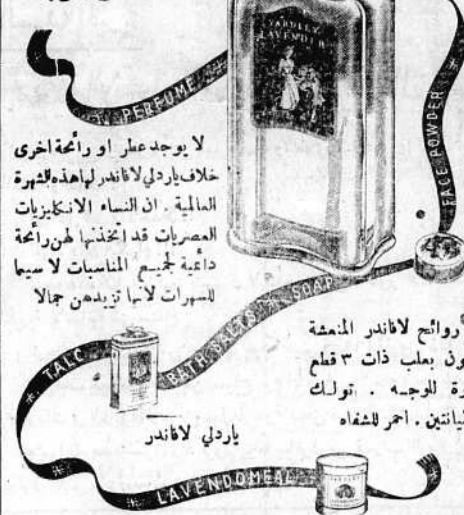 YARDLEY
LAVENDER
PERFUME
FACE POWDER
لا يوجد عطر او رائحة اخرى
خلاف ياردلي لافاندر لها هذه الشهرة
العالمية . ان النساء الانكليزيات
العصريات قد اتخذنها لهن رائحة
داعية لجميع المناسبات لا سيما
للسهرات لانها تزيدهن جمالا
SOAP
BATH SALTS
TALC
روائح لافاندر المنعشة
ون بعلب ذات ٣ قطع
رة للوجه . تولك
يانتين . احمر للشفاه
ياردلي لافاندر
LAVENDOMEAL